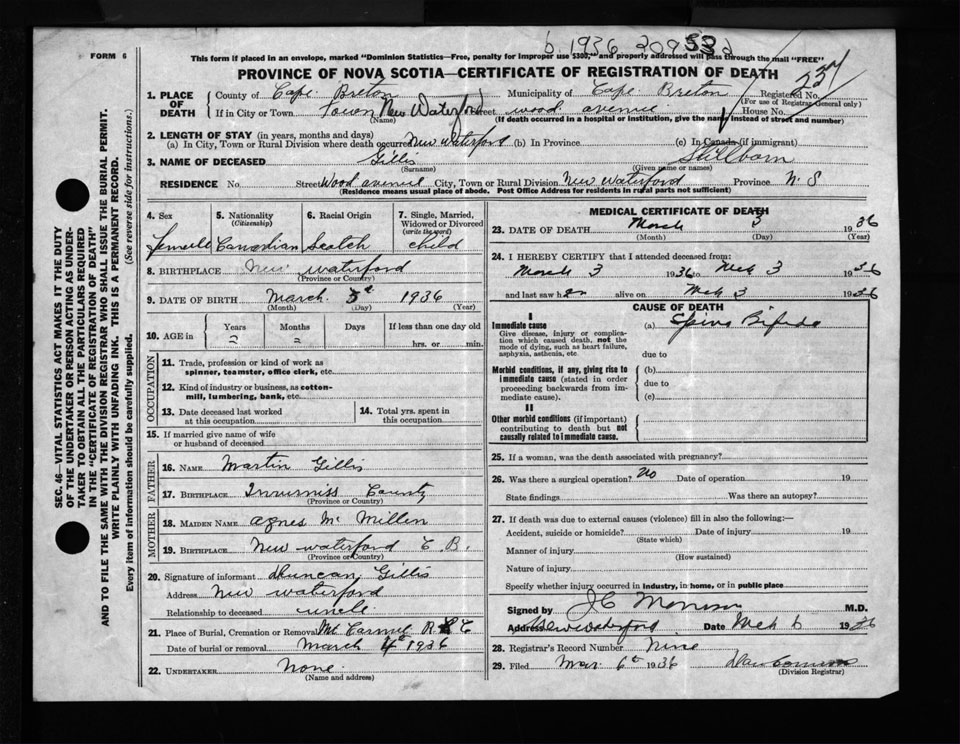 b. 1936 209532
FORM 6
This form if placed in an envelope, marked "Dominion Statistics—Free, penalty for improper use $300," and properly addressed will pass through the mail "FREE"
PROVINCE OF NOVA SCOTIA—CERTIFICATE OF REGISTRATION OF DEATH
237
1. PLACE OF DEATH County of Cape Breton Municipality of Cape Breton Registered No.
(For use of Registrar-General only)
If in City or Town Town New Waterford Street wood avenue House No.
(Name) (If death occurred in a hospital or institution, give the name instead of street and number)
2. LENGTH OF STAY (in years, months and days)
(a) In City, Town or Rural Division where death occurred New waterford (b) In Province (c) In Canada (if immigrant)
3. NAME OF DECEASED Gillis Stillborn
(Surname) (Given name or names)
RESIDENCE No. Street Wood avenue City, Town or Rural Division New waterford Province N. S
(Residence means usual place of abode. Post Office Address for residents in rural parts not sufficient)
SEC. 46—VITAL STATISTICS ACT MAKES IT THE DUTY
OF THE UNDERTAKER OR PERSON ACTING AS UNDER-
TAKER TO OBTAIN ALL THE PARTICULARS REQUIRED
IN THE "CERTIFICATE OF REGISTRATION OF DEATH"
AND TO FILE THE SAME WITH THE DIVISION REGISTRAR WHO SHALL ISSUE THE BURIAL PERMIT.
WRITE PLAINLY WITH UNFADING INK. THIS IS A PERMANENT RECORD.
Every item of information should be carefully supplied. (See reverse side for instructions.)
4. Sex 5. Nationality (Citizenship) 6. Racial Origin 7. Single, Married, Widowed or Divorced (write the word)
Female Canadian Scotch child
8. BIRTHPLACE New waterford
(Province or Country)
9. DATE OF BIRTH March 3d 1936
(Month) (Day) (Year)
10. AGE in Years Months Days If less than one day old
hrs. or min.
OCCUPATION
11. Trade, profession or kind of work as
spinner, teamster, office clerk, etc.
12. Kind of industry or business, as cotton-
mill, lumbering, bank, etc.
13. Date deceased last worked
at this occupation
14. Total yrs. spent in
this occupation
15. If married give name of wife
or husband of deceased
FATHER
16. NAME Martin Gillis
17. BIRTHPLACE County
(Province or Country)
MOTHER
18. MAIDEN NAME agnes Mc Millen
19. BIRTHPLACE New waterford C B.
(Province or Country)
20. Signature of informant Duncan Gillis
Address New waterford
Relationship to deceased uncle
21. Place of Burial, Cremation or Removal Mt Carmel R C
Date of burial or removal march 4th 1936
22. UNDERTAKER None
(Name and address)
MEDICAL CERTIFICATE OF DEATH
23. DATE OF DEATH March 3 1936
(Month) (Day) (Year)
24. I HEREBY CERTIFY that I attended deceased from:
March 3 1936 to Mch 3 1936
and last saw h alive on Mch 3 1936
CAUSE OF DEATH
I
Immediate cause (a) Spina Bifida
Give disease, injury or complica-
tion which caused death, not the
mode of dying, such as heart failure,
asphyxia, asthenia, etc.
due to
Morbid conditions, if any, giving rise to (b)
immediate cause (stated in order
proceeding backwards from im-
mediate cause).
due to
(c)
II
Other morbid conditions (if important)
contributing to death but not
causally related to immediate cause.
25. If a woman, was the death associated with pregnancy?
26. Was there a surgical operation? No Date of operation 19
State findings Was there an autopsy?
27. If death was due to external causes (violence) fill in also the following:—
Accident, suicide or homicide? Date of injury 19
(State which)
Manner of injury
(How sustained)
Nature of injury
Specify whether injury occurred in industry, in home, or in public place
Signed by J C Morrison M.D.
Address New waterford Date Mch 6 1936
28. Registrar's Record Number Nine
29. Filed Mar 6th 1936
(Division Registrar)